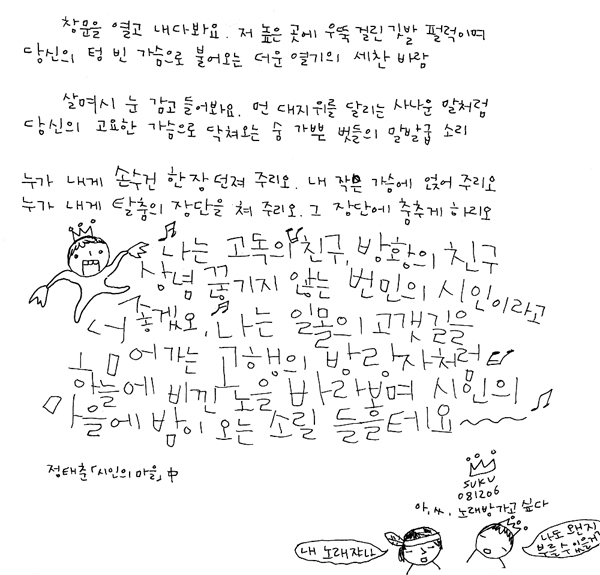 창문을 열고 내다봐요. 저 높은 곳에 우뚝 걸린 깃발 펄럭이며
당신의 텅 빈 가슴으로 불어오는 더운 열기의 세찬 바람
살며시 눈 감고 들어봐요. 먼 대지위를 달리는 사나운 말처럼
당신의 고요한 가슴으로 닥쳐오는 숨 가쁜 벗들의 말발굽 소리
누가 내게 손수건 한 장 던져 주리오. 내 작은 가슴에 얹어 주리오
누가 내게 탈춤의 장단을 쳐 주리오. 그 장단에 춤추게 하리오
나는 고독의 친구, 방황의 친구
상념 끊기지 않는 번민의 시인이라고
서 좋겠오, 나는 일몰의 고갯길을
넘어가는 고행의 방랑자처럼
하늘에 비낀 노을 바라보며 시인의
마을에 밤이 오는 소릴 들을테요
정태춘 「시인의 마을」 中
SUKU
081206
아, 씨, 노래방가고 싶다
내 노래쟈나
나도 왠지
부를 수 있을거